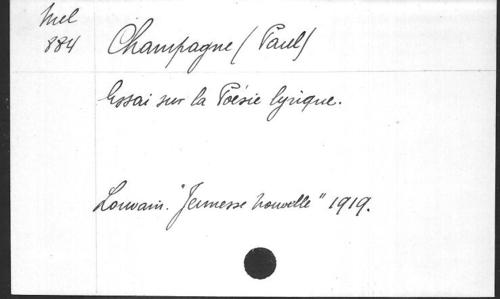 Mel
884
Champagne (Paul)
Essai sur la Poésie lyrique.
Louvain. "Jeunesse nouvelle" 1919.